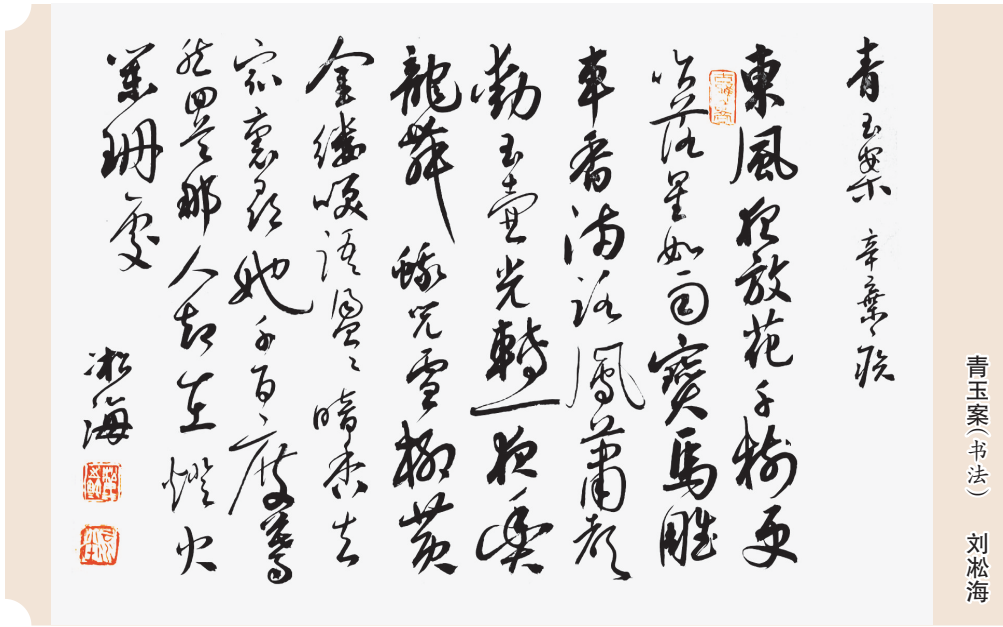 青玉案 辛棄疾
東風夜放花千樹更
吹落星如雨寶馬雕
車香滿路鳳蕭聲
動玉壺光轉一夜魚
龍舞蛾兒雪柳黃
金縷咲語盈〻暗香去
眾裏尋她千百〻度驀
然回首那人却在燈火
闌珊處
凇海
青玉案（书法） 刘凇海